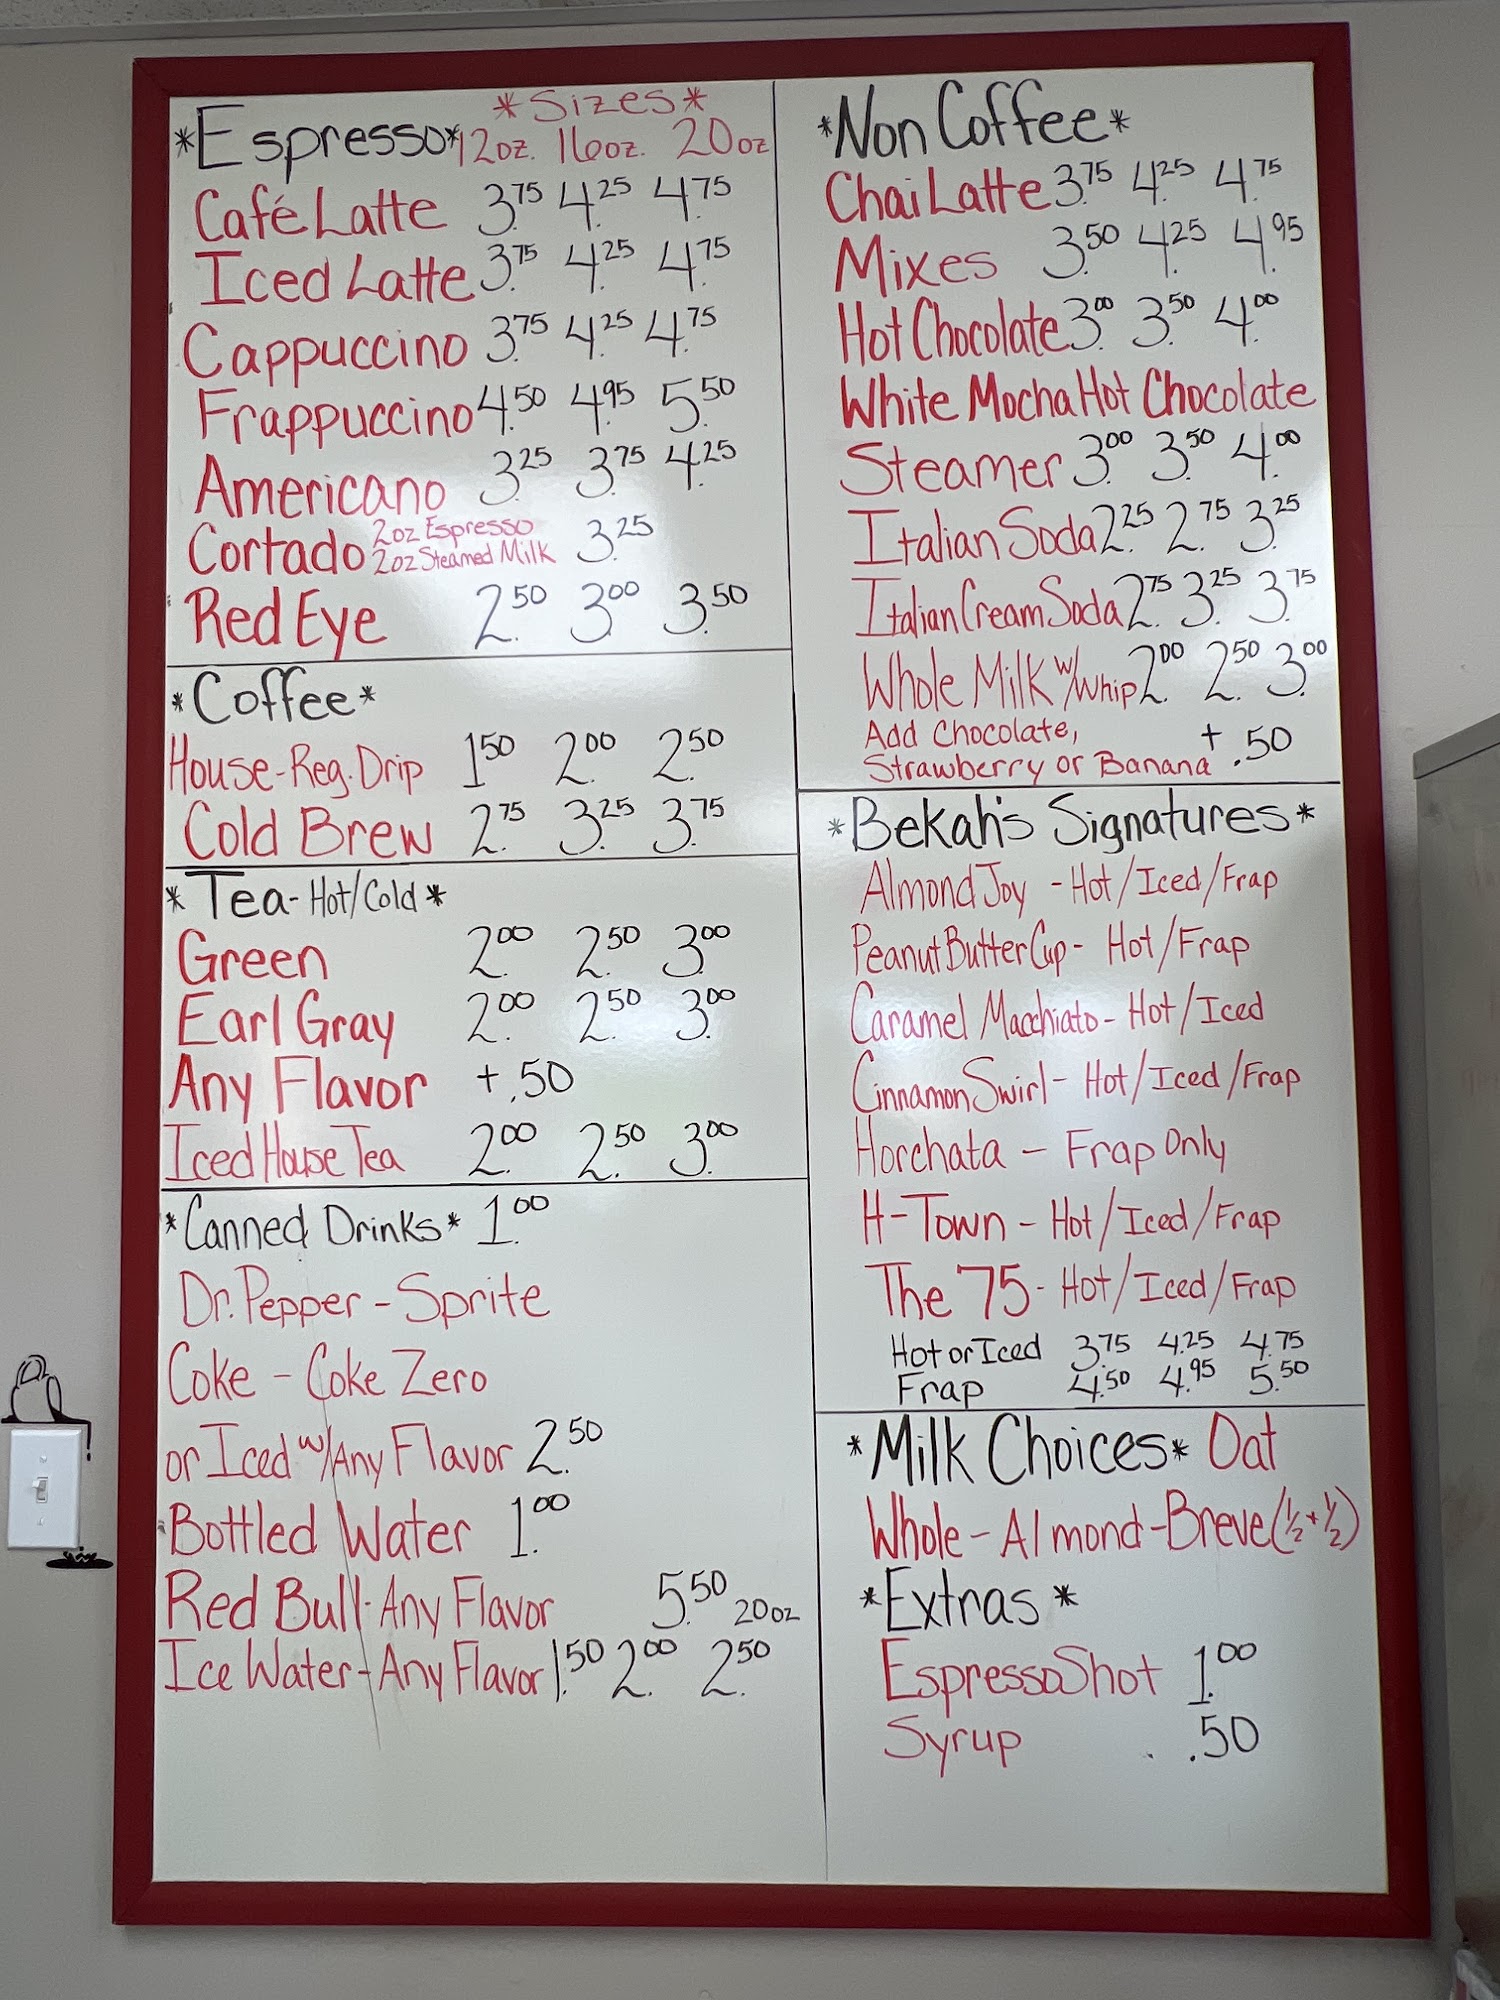 *Sizes*
*Espresso* 12oz. 16oz. 20oz
Café Latte 3.75 4.25 4.75
Iced Latte 3.75 4.25 4.75
Cappuccino 3.75 4.25 4.75
Frappuccino 4.50 4.95 5.50
Americano 3.25 3.75 4.25
Cortado 2oz Espresso 3.25
2oz Steamed Milk
Red Eye 2.50 3.00 3.50
*Coffee*
House-Reg. Drip 1.50 2.00 2.50
Cold Brew 2.75 3.25 3.75
*Tea-Hot/Cold*
Green 2.00 2.50 3.00
Earl Gray 2.00 2.50 3.00
Any Flavor +.50
Iced House Tea 2.00 2.50 3.00
*Canned Drinks* 1.00
Dr. Pepper - Sprite
Coke - Coke Zero
or Iced w/Any Flavor 2.50
Bottled Water 1.00
Red Bull-Any Flavor 5.50 20oz
Ice Water-Any Flavor 1.50 2.00 2.50
*Non Coffee*
Chai Latte 3.75 4.25 4.75
Mixes 3.50 4.25 4.95
Hot Chocolate 3.00 3.50 4.00
White Mocha Hot Chocolate
Steamer 3.00 3.50 4.00
Italian Soda 2.25 2.75 3.25
Italian Cream Soda 2.75 3.25 3.75
Whole Milk w/Whip 2.00 2.50 3.00
Add Chocolate,
Strawberry or Banana +.50
*Bekah's Signatures*
Almond Joy - Hot/Iced/Frap
Peanut Butter Cup - Hot/Frap
Caramel Macchiato - Hot/Iced
Cinnamon Swirl - Hot/Iced/Frap
Horchata - Frap Only
H-Town - Hot/Iced/Frap
The 75 - Hot/Iced/Frap
Hot or Iced 3.75 4.25 4.75
Frap 4.50 4.95 5.50
*Milk Choices* Oat
Whole - Almond - Breve (½+½)
*Extras*
Espresso Shot 1.00
Syrup .50